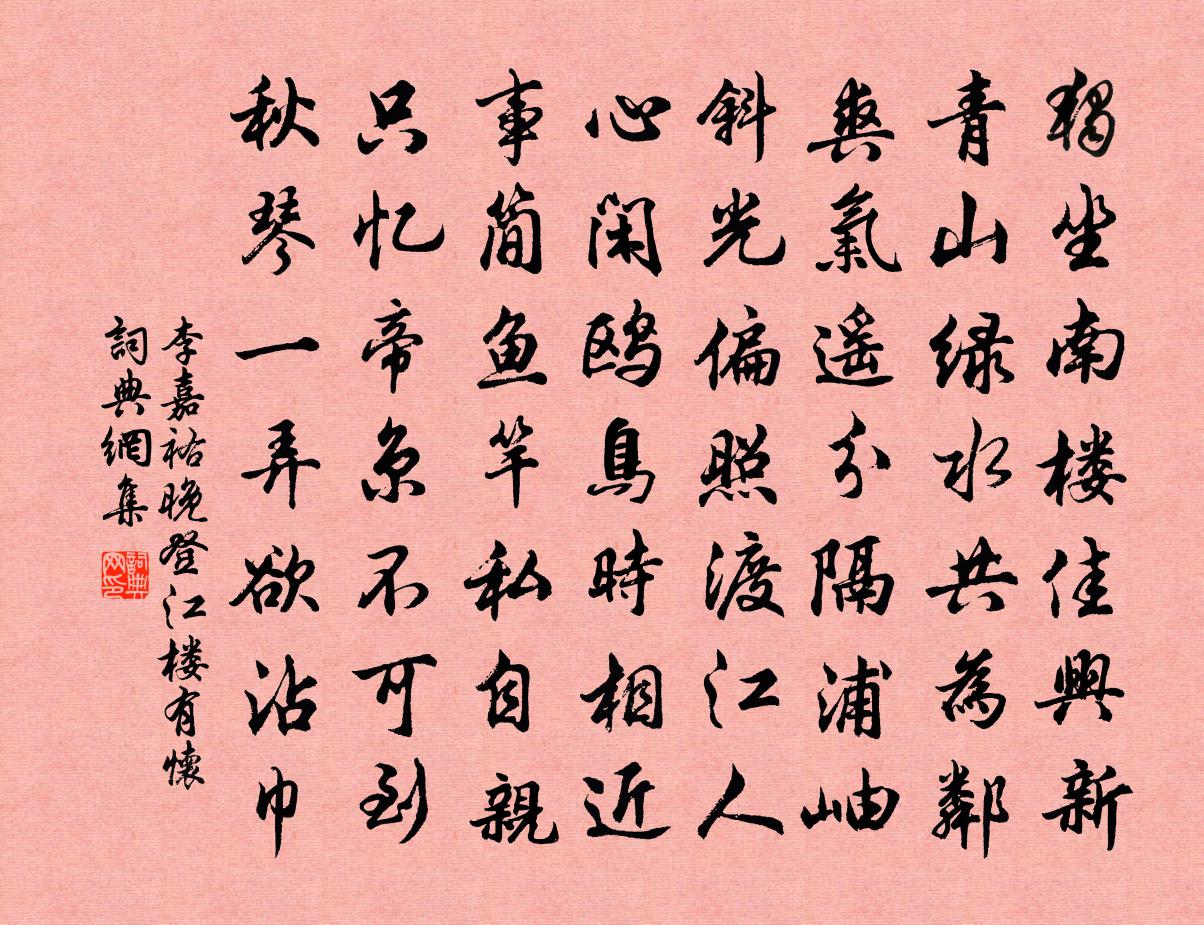 獨坐南楼佳興新
青山緑水共為鄰
爽氣遥分隔浦岫
斜光偏照渡江人
心閑鸥鳥時相近
事简鱼竿私自親
只忆帝京不可到
秋琴一弄欲沾巾
李嘉祐晚登江楼有懷
詞典網集
詞典网印